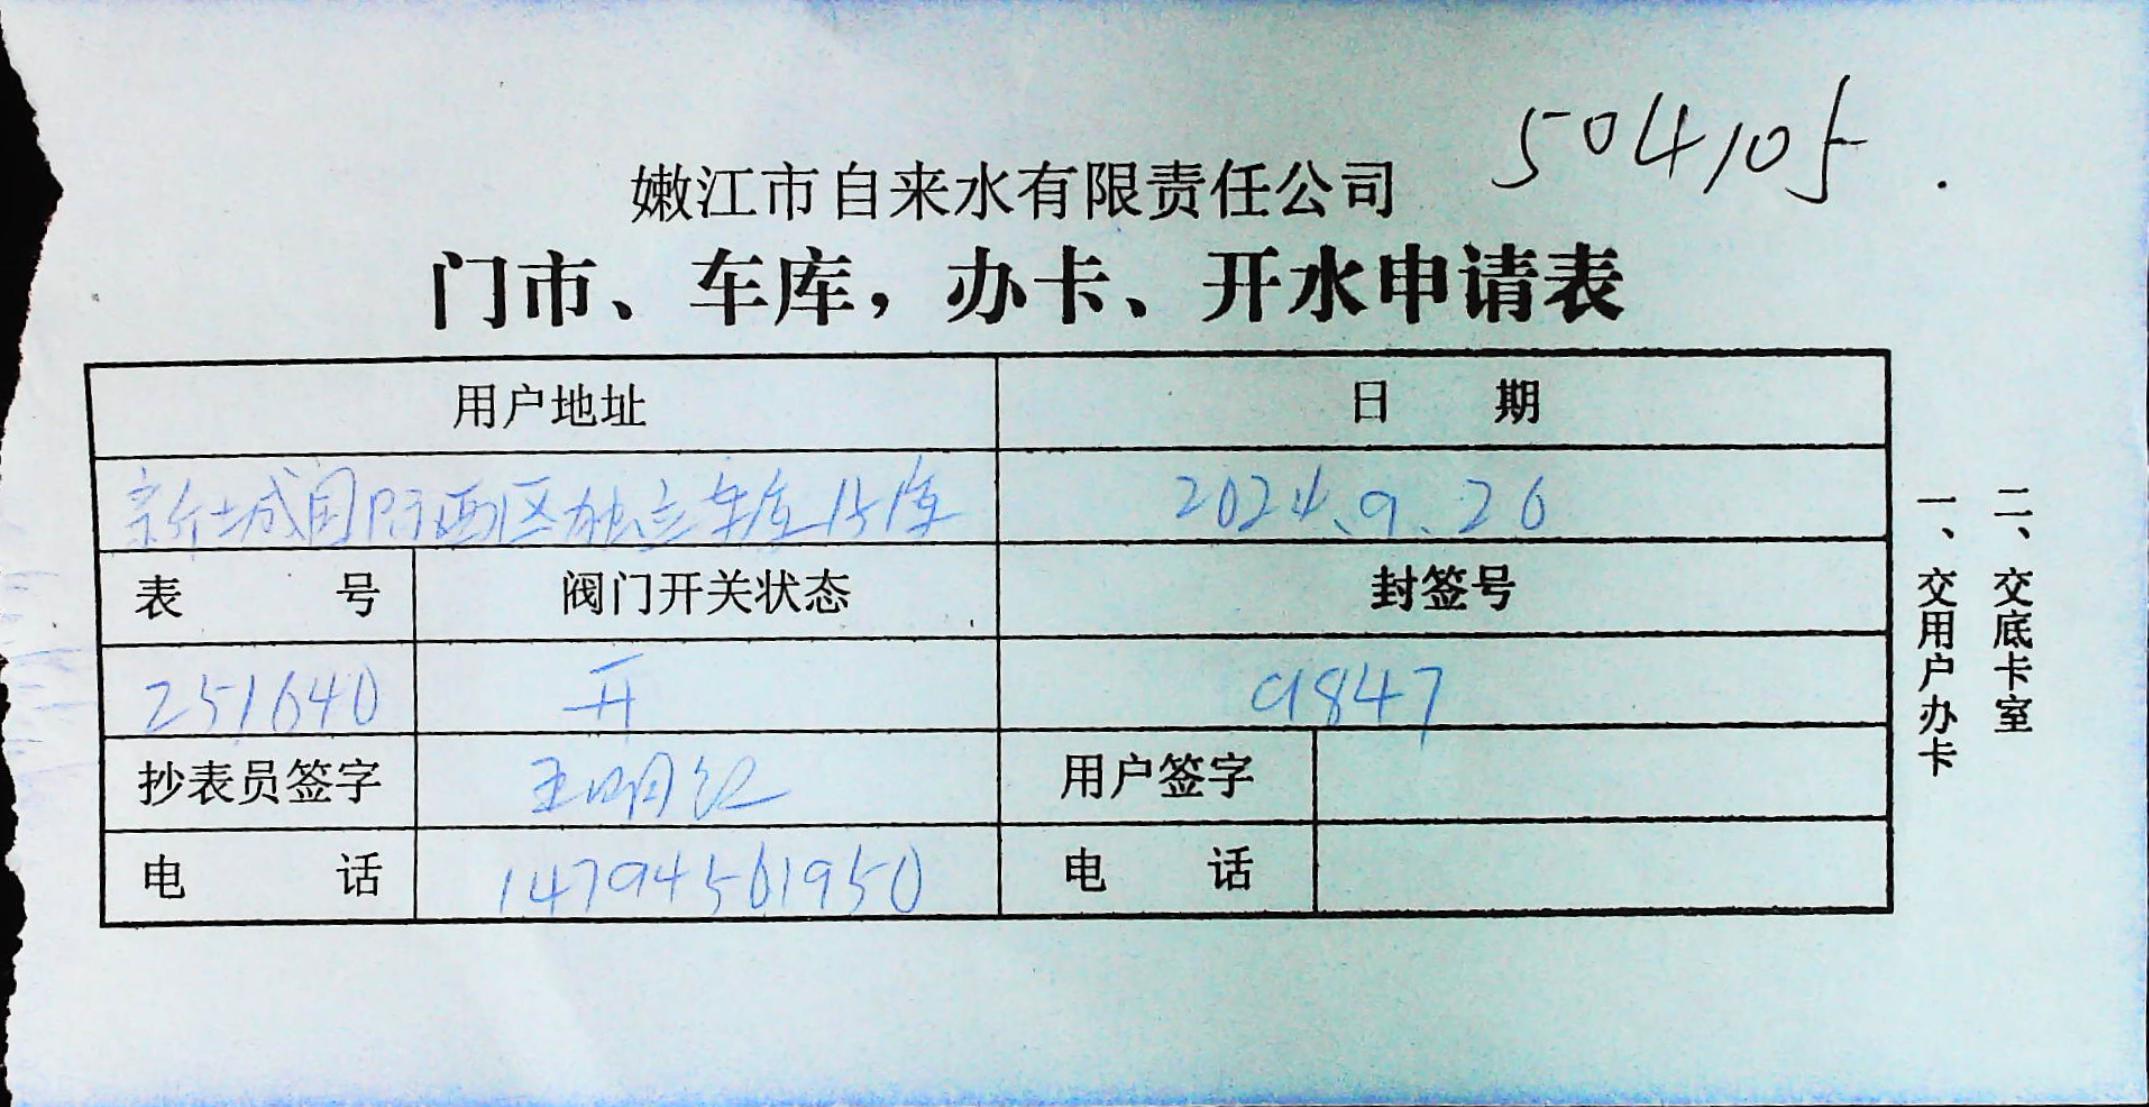 504105
嫩江市自来水有限责任公司
门市、车库，办卡、开水申请表
用户地址 日 期
新城国际西区独立车库15库 2024.9.26
表 号 阀门开关状态 封签号
251640 开 9847
抄表员签字 王明红 用户签字
电 话 14794561950 电 话
一、交用户办卡
二、交底卡室